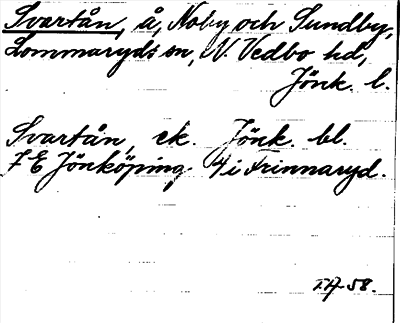 Svartån, å, Noby och Sundby,
Lommaryds sn, N. Vedbo hd,
Jönk. l.
Svartån, ek. Jönk. bl.
7 E Jönköping, 4 i Frinnaryd.
58.